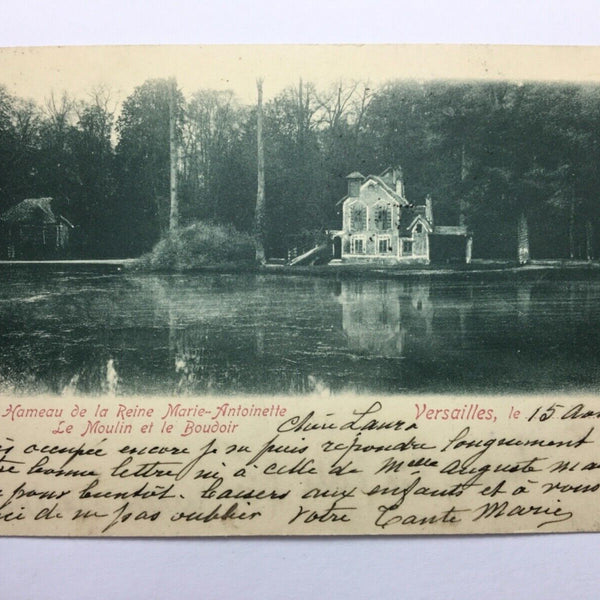 Hameau de la Reine Marie-Antoinette
Le Moulin et le Boudoir
Versailles, le 15 Aou
Chère Laura
occupée encore je ne puis répondre longuement
bonne lettre ni à celle de Mme Auguste
pour bientôt. baisers aux enfants et à vous
ici de ne pas oublier Votre Tante Marie